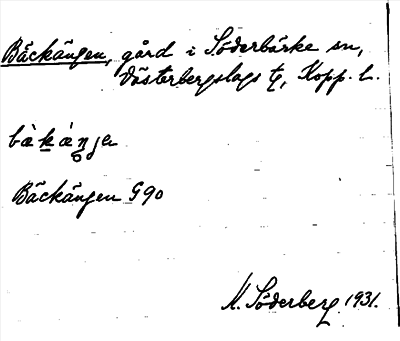 Bäckängen, gård i Söderbärke sn,
Västerbergslags tg, Kopp. L.
Bäckängen G 90
K. Söderberg 1931.